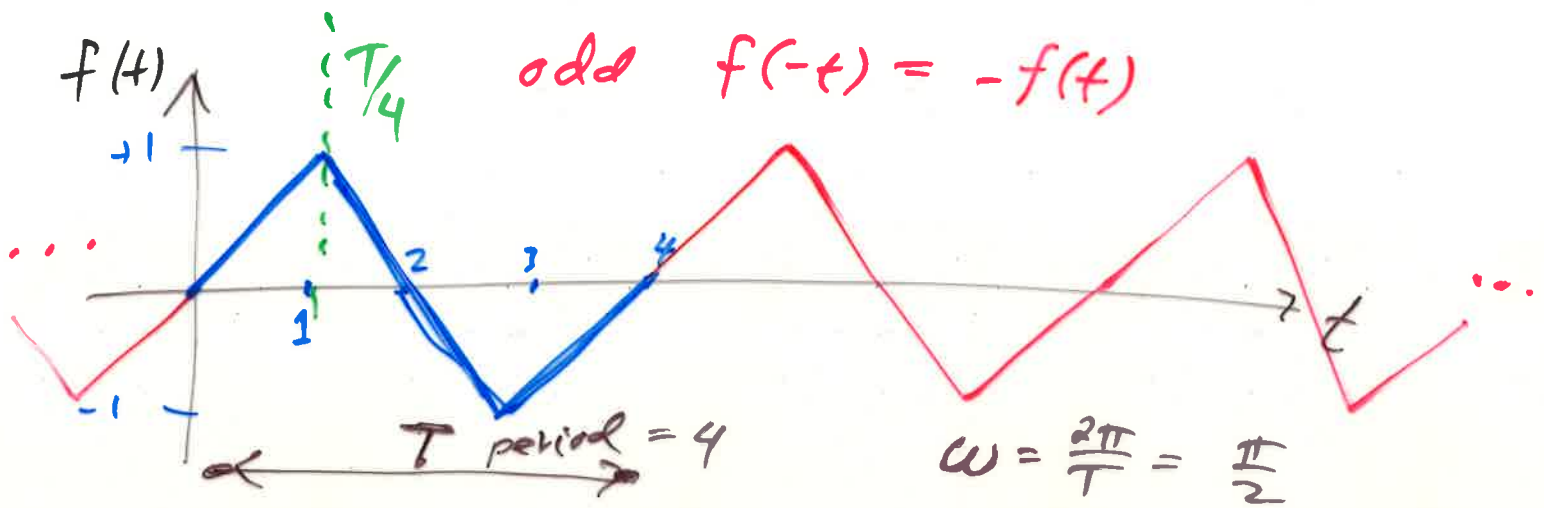 f(t)
T/4
odd f(-t) = -f(t)
+1
... 1 2 3 4 ...
t
-1
T period = 4
ω = 2π/T = π/2